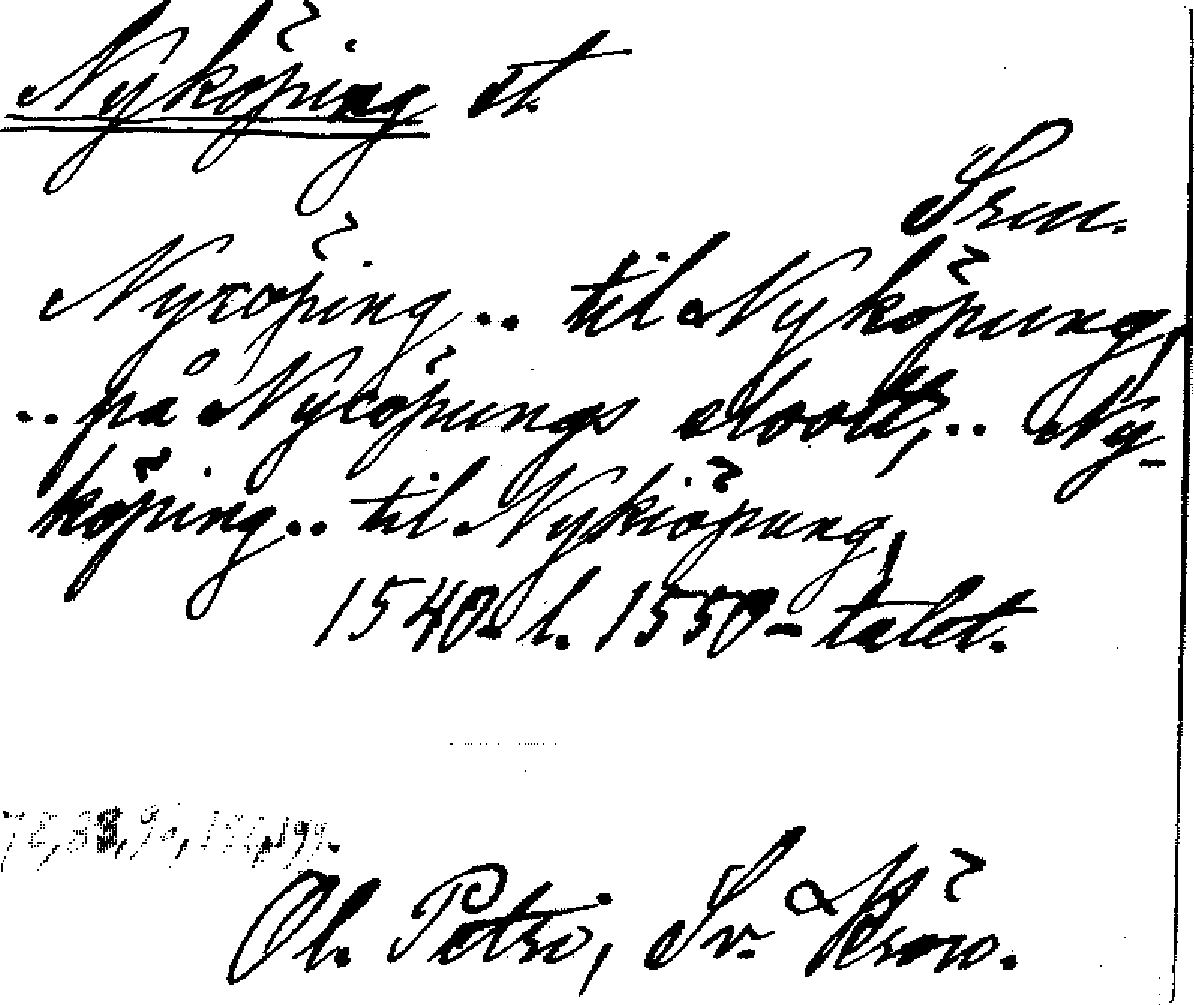 Nyköping st.
Srm.
Nycöping .. til Nyköpung,
.. på Nycöpungs slott, .. Ny-
köping .. til Nykiöpung,
1540- l. 1550-talet.
Ol. Petri, Sv. Krön.